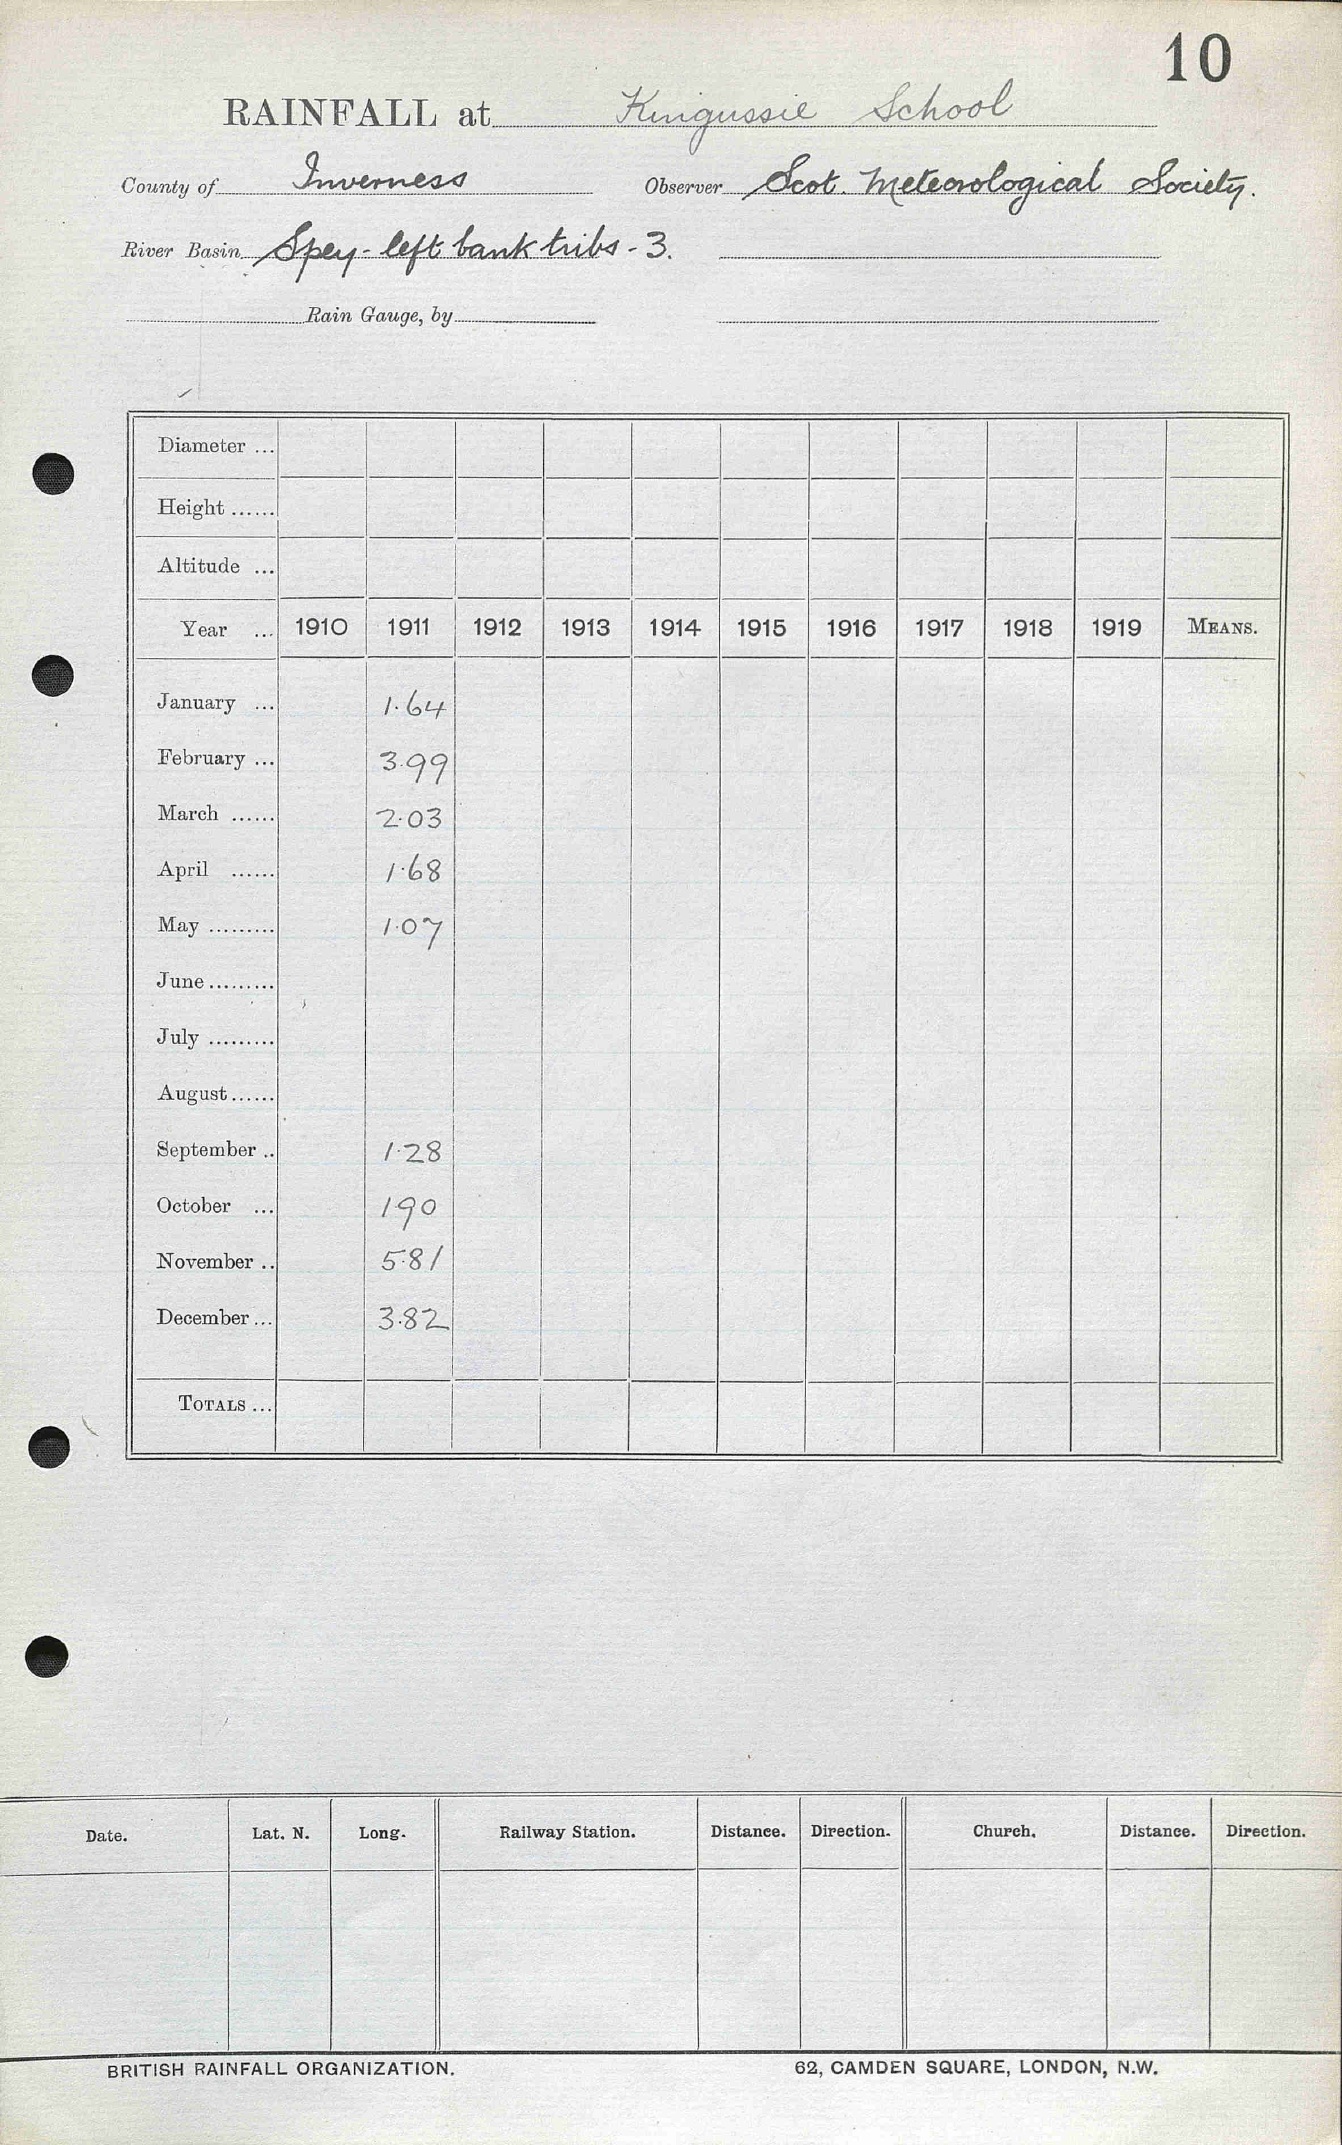 10
RAINFALL at Kingussie School
County of Inverness Observer Scot. Meteorological Society.
River Basin Spey - left bank tribs - 3.
Rain Gauge, by
Diameter ...
Height ......
Altitude ...
Year ... 1910 1911 1912 1913 1914 1915 1916 1917 1918 1919 MEANS.
January ... 1.64
February ... 3.99
March ...... 2.03
April ...... 1.68
May ......... 1.07
June .........
July .........
August ......
September .. 1.28
October ... 1.90
November .. 5.81
December ... 3.82
TOTALS ...
Date. Lat. N. Long. Railway Station. Distance. Direction. Church. Distance. Direction.
BRITISH RAINFALL ORGANIZATION. 62, CAMDEN SQUARE, LONDON, N.W.